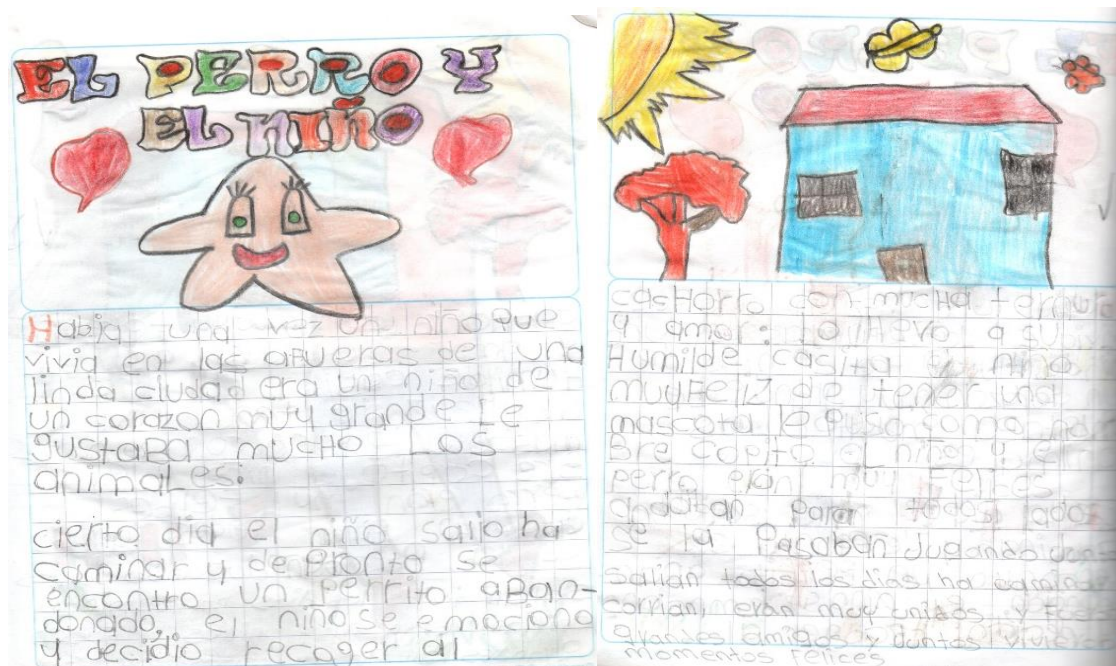 EL PERRO Y
EL NIÑO
Habia una vez un niño que
vivia en las afueras de una
linda ciudad era un niño de
un corazon muy grande Le
gustaBa mucHo Los
animaLes:
cierto dia el niño salio ha
caminar y de pronto se
encontro un perrito aBan-
donado, el niño se emociono
y decidio recoger al
cacHorro con mucha
y amor: lo llevo a su
Humilde casita el niño
muy FeLiz de tener una
mascota le puso como nom
Bre copito el niño y el
perro eran muy felises
andaban para todos lados
se la Pasaban Jugando
salian todos los dias ha caminar
corrian, eran muy unidos y
grandes amigos y Juntos
momentos Felices